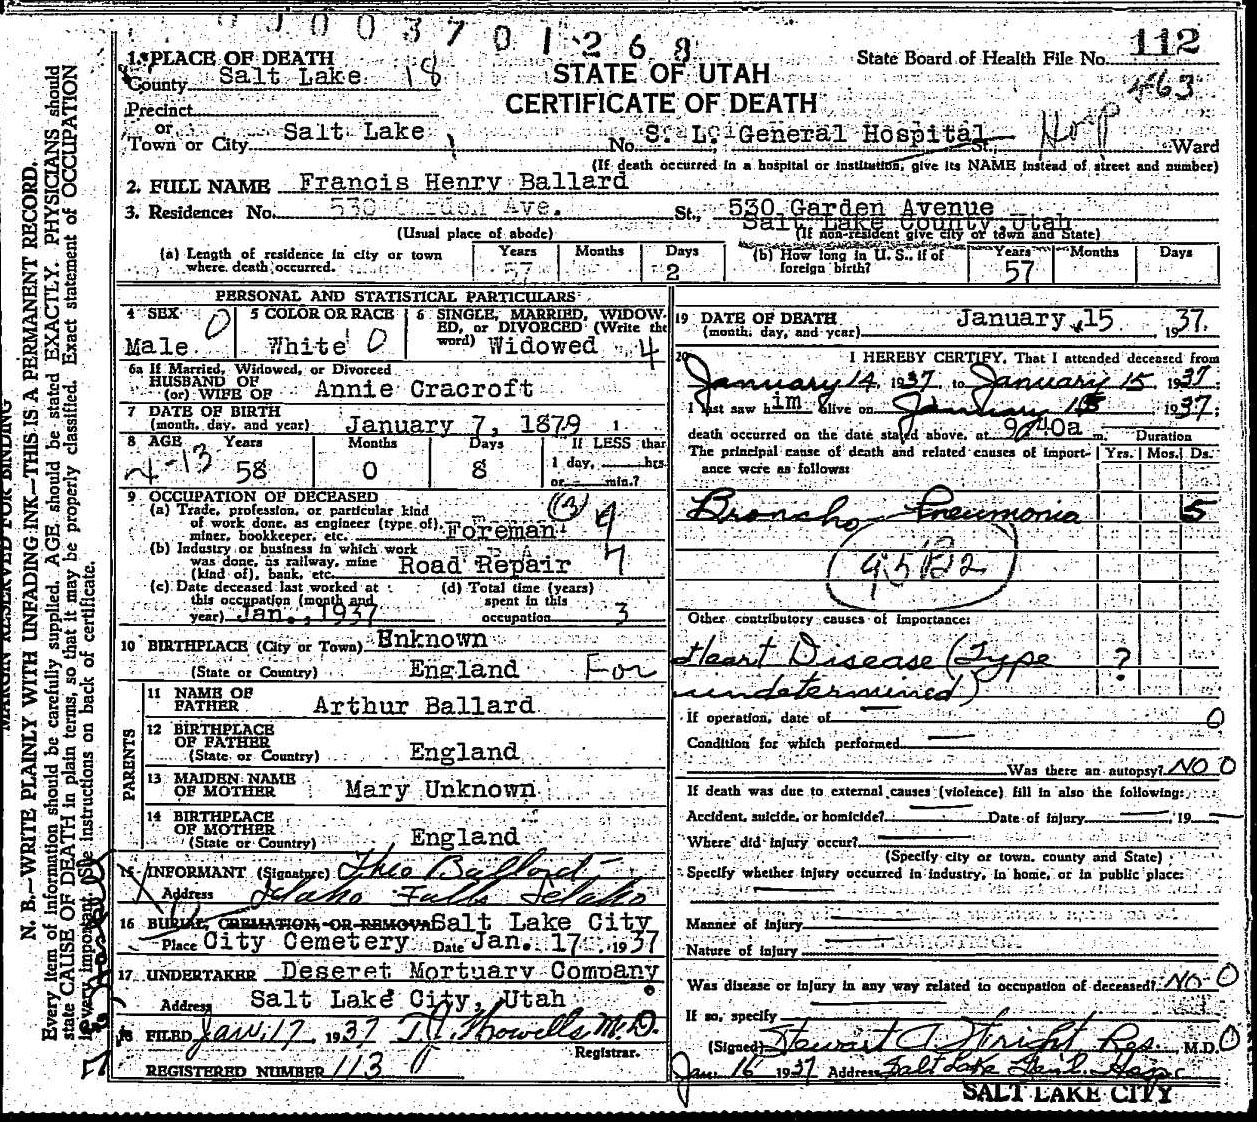 0003701268
1. PLACE OF DEATH
County Salt Lake 18
STATE OF UTAH
State Board of Health File No. 112
463
Precinct
CERTIFICATE OF DEATH
or
Town or City Salt Lake No. S. L. General Hospital St., Hosp Ward
(If death occurred in a hospital or institution, give its NAME instead of street and number)
2. FULL NAME Francis Henry Ballard
3. Residence: No. 530 Garden Ave. St., 530 Garden Avenue
Salt Lake County Utah
(Usual place of abode) (If non-resident give city or town and State)
(a) Length of residence in city or town where death occurred. Years 57 Months Days 2
(b) How long in U. S., if of foreign birth? Years 57 Months Days
PERSONAL AND STATISTICAL PARTICULARS
4 SEX 0
Male
5 COLOR OR RACE
White 0
6 SINGLE, MARRIED, WIDOW-
ED, or DIVORCED (Write the
word) Widowed 4
6a If Married, Widowed, or Divorced
HUSBAND OF
(or) WIFE OF Annie Cracroft
7 DATE OF BIRTH
(month, day, and year) January 7, 1879
8 AGE Years Months Days If LESS than
4-13 58 0 8 1 day, hrs.
or min.?
9 OCCUPATION OF DECEASED
(a) Trade, profession, or particular kind
of work done, as engineer (type of),
miner, bookkeeper, etc. Foreman (3) 4
(b) Industry or business in which work
was done, as railway, mine
(kind of), bank, etc. Road Repair 7
(c) Date deceased last worked at
this occupation (month and
year) Jan., 1937
(d) Total time (years)
spent in this
occupation 3
10 BIRTHPLACE (City or Town) Unknown
(State or Country) England For
PARENTS
11 NAME OF
FATHER Arthur Ballard
12 BIRTHPLACE
OF FATHER
(State or Country) England
13 MAIDEN NAME
OF MOTHER Mary Unknown
14 BIRTHPLACE
OF MOTHER
(State or Country) England
15 INFORMANT (Signature) Theo Ballard
Address Idaho Falls Idaho
16 BURIAL, CREMATION, OR REMOVAL Salt Lake City
Place City Cemetery Date Jan. 17 1937
17 UNDERTAKER Deseret Mortuary Company
Address Salt Lake City, Utah
18 FILED Jan. 17 1937 T. J. Howells M.D.
Registrar.
REGISTERED NUMBER 113
19 DATE OF DEATH
(month, day, and year) January 15 1937.
20 I HEREBY CERTIFY, That I attended deceased from
January 14, 1937 to January 15, 1937;
I last saw him alive on January 15 1937;
death occurred on the date stated above, at 9:40a m. Duration
The principal cause of death and related causes of import- Yrs. Mos. Ds.
ance were as follows:
Broncho Pneumonia 5
Other contributory causes of importance:
Heart Disease (Type ?
undetermined)
If operation, date of 0
Condition for which performed
Was there an autopsy? NO 0
If death was due to external causes (violence) fill in also the following:
Accident, suicide, or homicide? Date of injury , 19
Where did injury occur?
(Specify city or town, county and State)
Specify whether injury occurred in industry, in home, or in public place:
Manner of injury
Nature of injury
Was disease or injury in any way related to occupation of deceased? NO 0
If so, specify
(Signed) Stewart A Wright Res. M.D. 0
Jan. 16 1937 Address Salt Lake Gen'l. Hosp.
SALT LAKE CITY
MARGIN RESERVED FOR BINDING
N. B.—WRITE PLAINLY WITH UNFADING INK—THIS IS A PERMANENT RECORD.
Every item of information should be carefully supplied. AGE should be stated EXACTLY. PHYSICIANS should
state CAUSE OF DEATH in plain terms, so that it may be properly classified. Exact statement of OCCUPATION
is very important. See instructions on back of certificate.